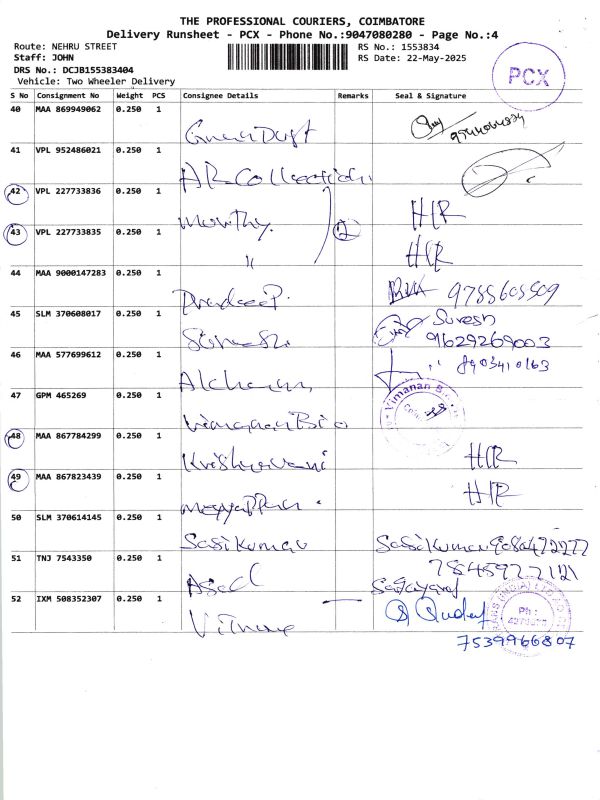 THE PROFESSIONAL COURIERS, COIMBATORE
Delivery Runsheet - PCX - Phone No.:9047080280 - Page No.:4
Route: NEHRU STREET RS No.: 1553834
Staff: JOHN RS Date: 22-May-2025
DRS No.: DCJB155383404
Vehicle: Two Wheeler Delivery
PCX
S No Consignment No Weight PCS Consignee Details Remarks Seal & Signature
40 MAA 869949062 0.250 1
41 VPL 952486021 0.250 1
AR Collection
42 VPL 227733836 0.250 1
Moorthy HR
43 VPL 227733835 0.250 1 2
" HR
44 MAA 9000147283 0.250 1
Pradeep P. 9785605509
45 SLM 370608017 0.250 1 Suresh
Suresh 9629269003
46 MAA 577699612 0.250 1 8903410163
47 GPM 465269 0.250 1 Vimanan
Vimanan Bio
48 MAA 867784299 0.250 1
Krishnaveni HR
49 MAA 867823439 0.250 1
HR
50 SLM 370614145 0.250 1
Sasikumar Sasikumar 9080472277
51 TNJ 7543350 0.250 1 7845977121
Asad
52 IXM 508352307 0.250 1
7539966807